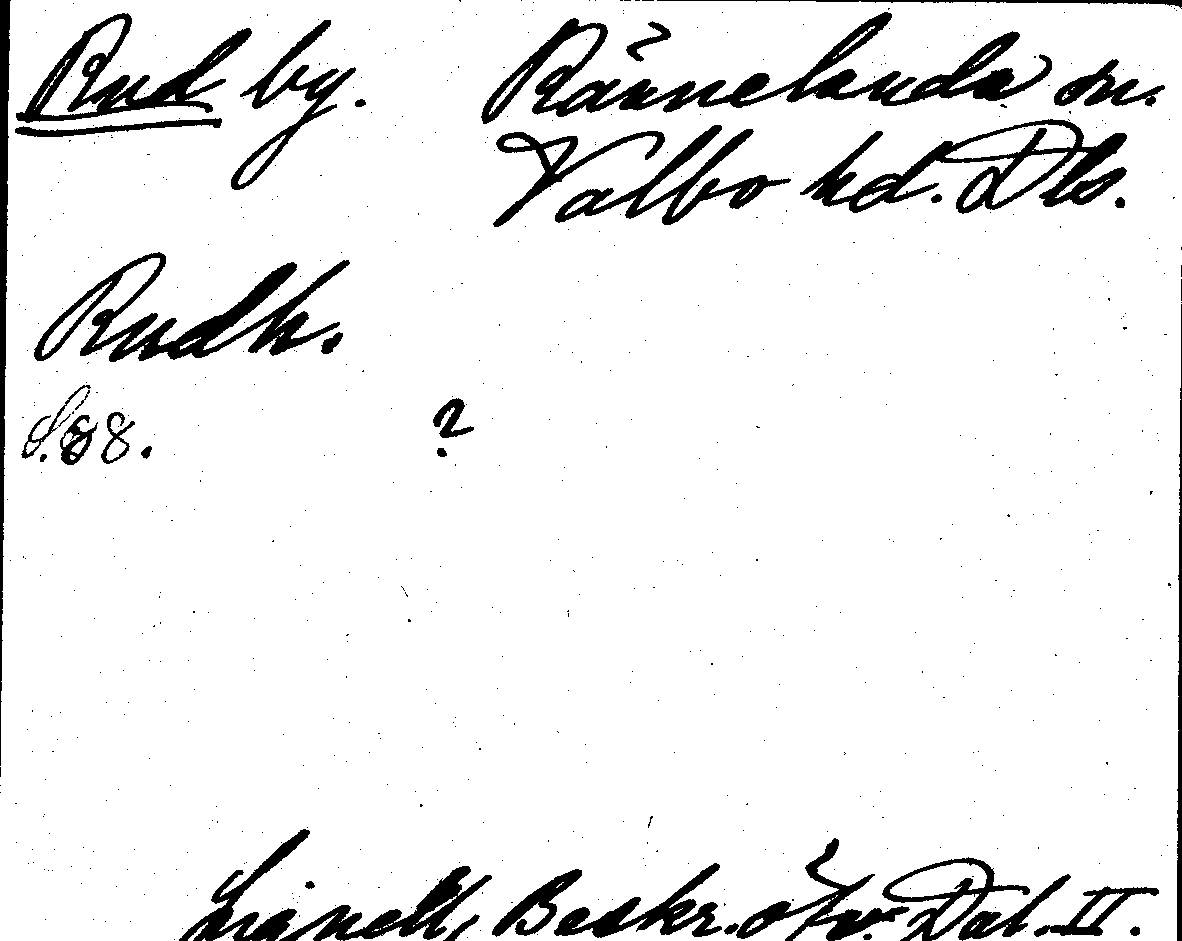 Rud by. Rännelanda sn.
Valbo hd. Dls.
Rudh.
S. 88. ?
Lignell, Beskr. öfv. Dal. II.